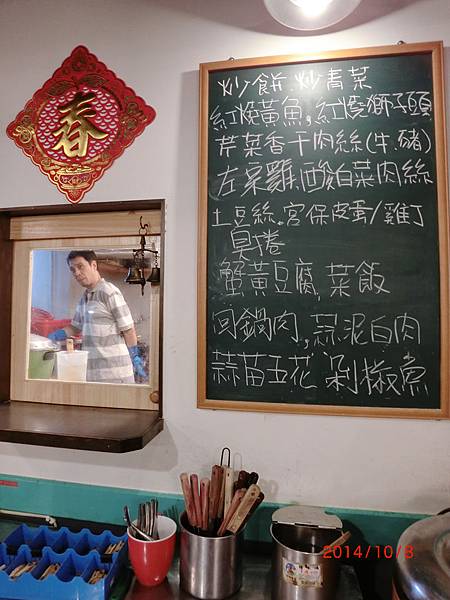 春
炒餅.炒青菜
紅燒黃魚,紅燒獅子頭
芹菜香干肉絲(牛.豬)
左宗雞.酸白菜肉絲
土豆絲.宮保皮蛋/雞丁
臭捲
蟹黃豆腐.菜飯
回鍋肉,蒜泥白肉
蒜苗五花 剁椒魚
2014/10/3